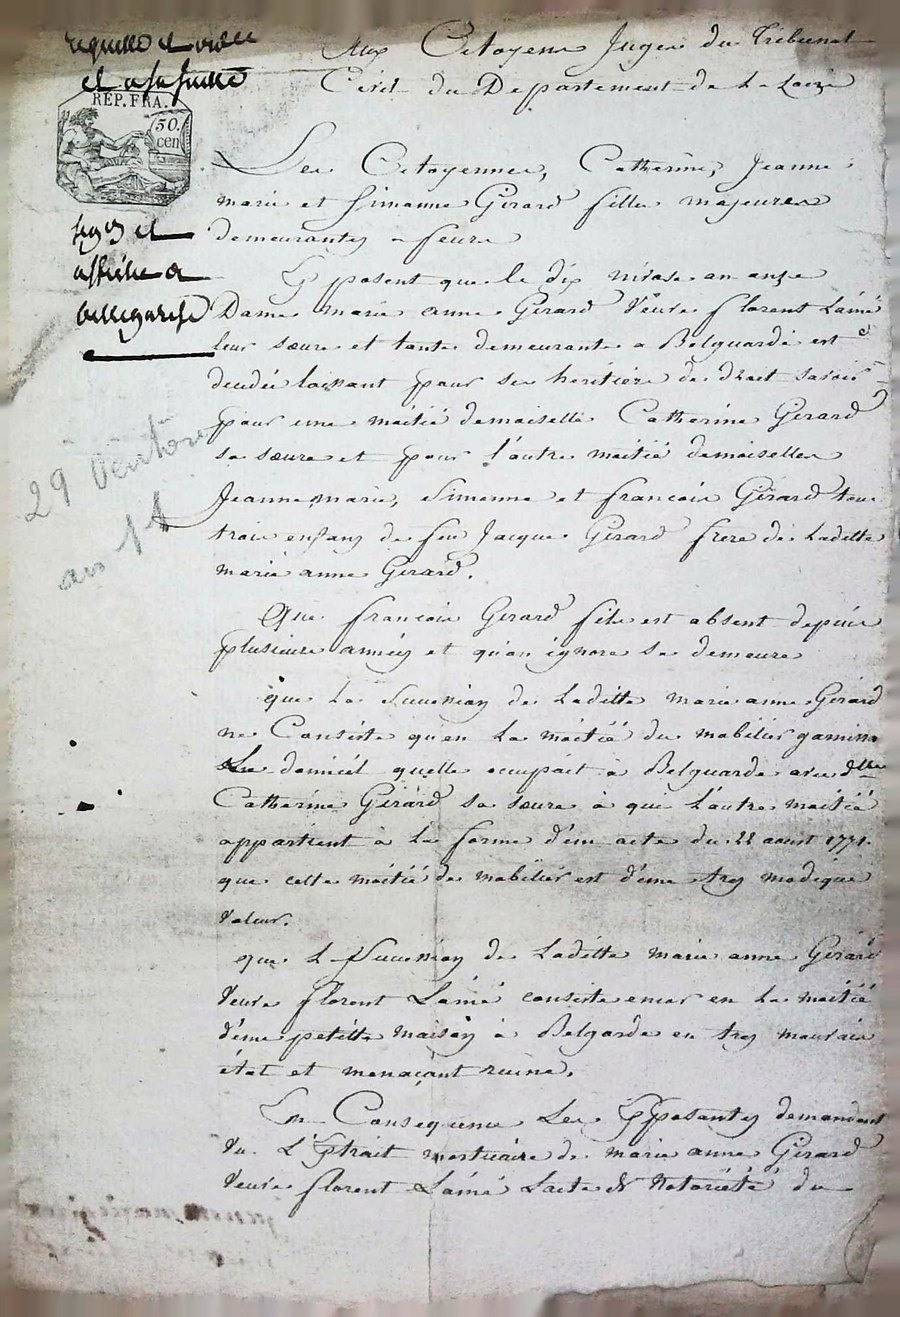 Requette et ordce
et a sa suitte
REP. FRA.
50.
cen
et
affiche a
bellegarde
29 Ventôse
an 11
Aux Citoyens Juges du Tribunal
Civil du Departement de la Loire
Les Citoyennes, Catherine, Jeanne
marie et Simonne Girard filles majeures
demeurantes a feurs
Exposent que le dix nivose an onze
Dame marie anne Girard Veuve florent Lainé
leur sœure et tante demeurante a Belguarde est
decedée laissant pour ses heritiers de droit savoir
pour une moitié demoiselle Catherine Girard
sa sœure et pour l'autre moitié demoiselles
Jeanne marie, Simonne et francois Girard tous
trois enfans de feu Jacque Girard frere de Laditte
marie anne Girard.
Que francois Girard fils est absent depuis
plusieurs années et qu'on ignore sa demeure
que La Succession de Laditte marie anne Girard
ne Consiste qu'en La moitié du mobilier garnissa
Le domicil quelle occupait à Belguarde avec dlle
Catherine Girard sa sœure à que L'autre moitié
appartient à La forme d'un acte du 22 aoust 1771.
que cette moitié de mobilier est d'une tres modique
Valeur.
que L Succession de Laditte marie anne Girard
Veuve florent Lainé consiste encor en La moitié
d'une petitte maison à Belgarde en tres mauvais
état et menaçant ruine.
En Consequence Les Exposantes demandent
Vu L'Extrait mortuaire de marie anne Girard
Veuve florent Lainé L'acte de Notoriété du